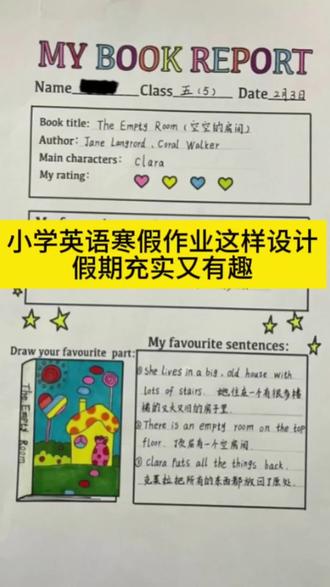 MY BOOK REPORT
Name Class 五(5) Date 2月3日
Book title: The Empty Room (空空的房间)
Author: Jane Langford、Coral Walker
Main characters: Clara
My rating:
小学英语寒假作业这样设计
假期充实又有趣
Draw your favourite part:
The Empty Room
My favourite sentences:
①She lives in a big, old house with
lots of stairs. 她住在一个有很多楼
梯的又大又旧的房子里.
②There is an empty room on the top
floor. 顶层有一个空房间.
③Clara puts all the things back.
克莱拉把所有的东西都放回了原处.